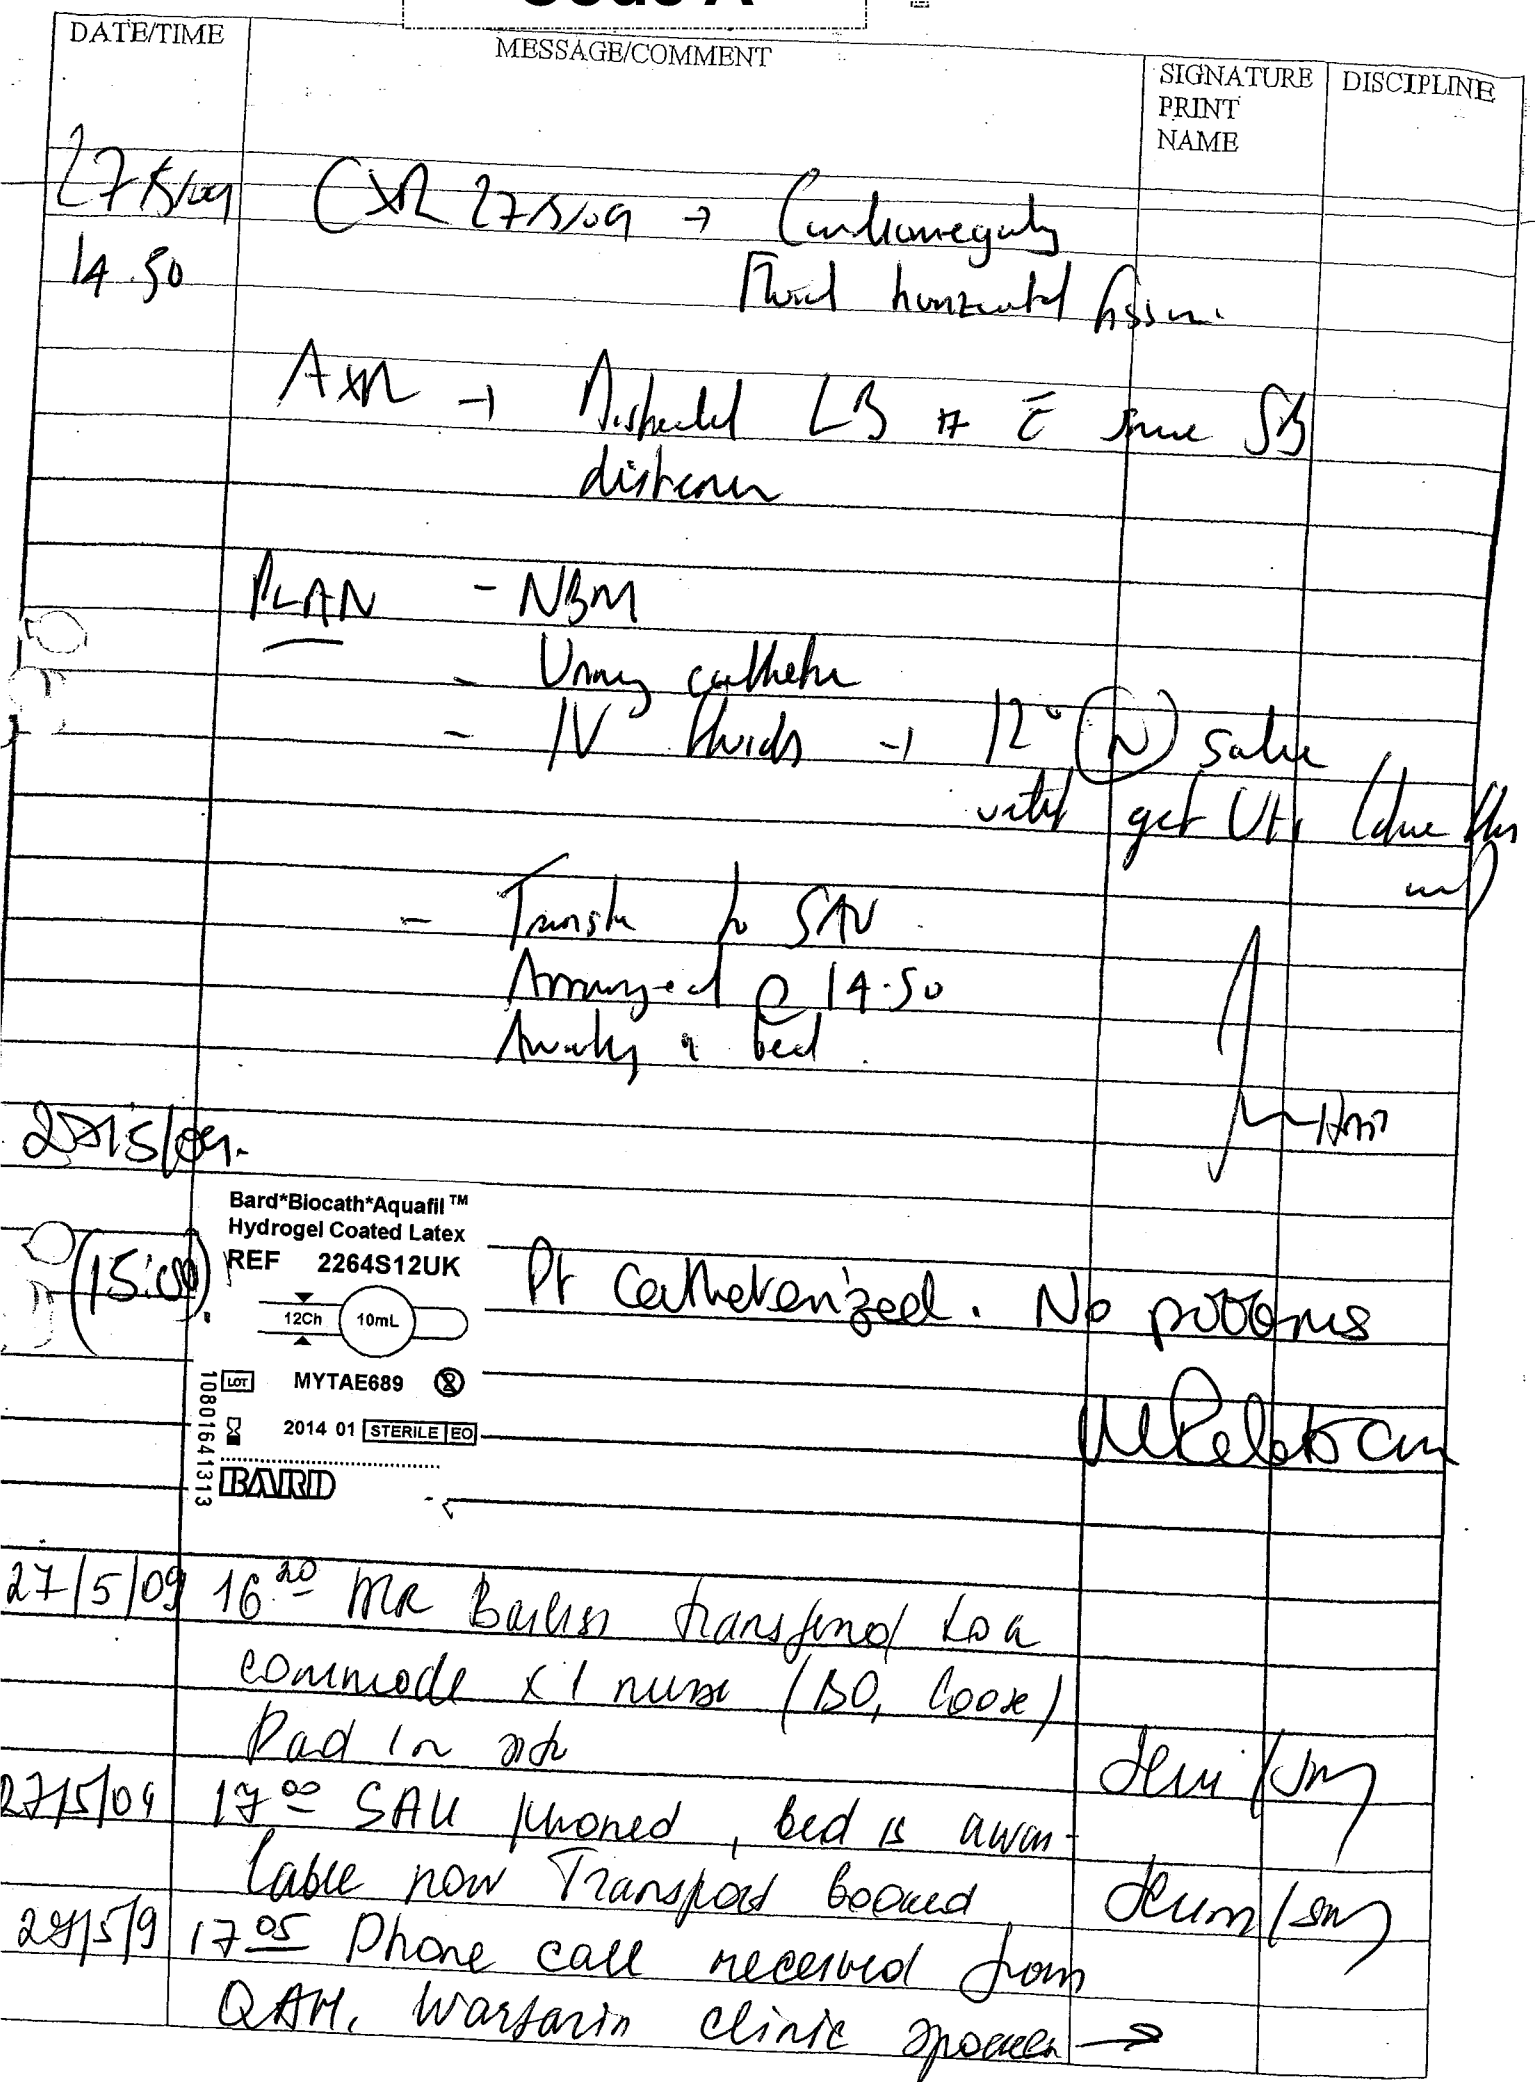 Code A
DATE/TIME MESSAGE/COMMENT SIGNATURE PRINT NAME DISCIPLINE
27/5/09 CXR 27/5/09 → Cardiomegaly
14.50 Fluid horizontal fissure
AXR → Distended LB c̄ some SB
distension
PLAN - NBM
- Urinary catheter
- IV fluids → 12° (N) saline
until get U+Es (due this
- Transfer to SAU
Arranged @ 14.50
Awaiting a bed.
27/5/09.
Bard*Biocath*Aquafil™
Hydrogel Coated Latex
REF 2264S12UK
(15:00). Pt catheterized. No problems
12Ch 10mL
LOT MYTAE689
2014 01 STERILE EO
BARD
10801641313
27/5/09 16 20 MR transferred to a
commode x 1 nurse (BO, loose)
Pad in situ
27/5/09 17 00 SAU phoned, bed is avai-
lable now Transport booked
27/5/9 17 05 Phone call received from
QAH, Warfarin clinic spoken →